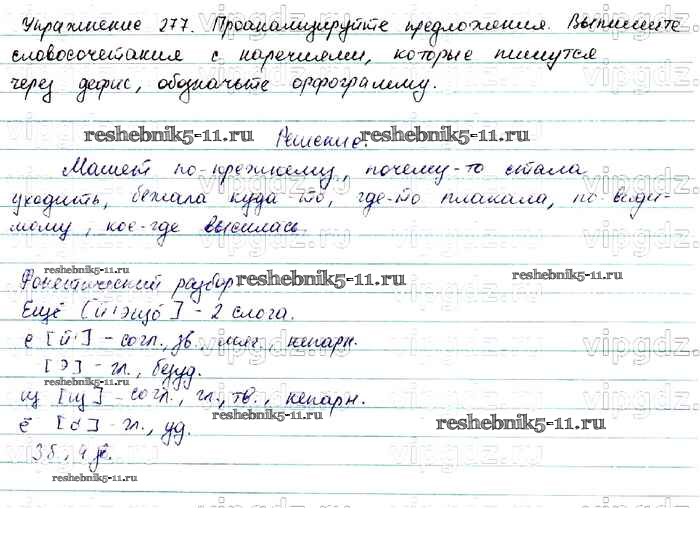 Упражнение 277. Проанализируйте предложения. Выпишите
словосочетания с наречиями, которые пишутся
через дефис, обозначьте орфограмму.
reshebnik5-11.ru Решение. reshebnik5-11.ru
Машет по-прежнему, почему-то стала
уходить, бежала куда-то, где-то плакала, по-види-
мому, кое-где высилась.
reshebnik5-11.ru
Фонетический разбор reshebnik5-11.ru reshebnik5-11.ru
Ещё [й'эщо́] - 2 слога.
е [й'] - согл., зв., мяг., непарн.
[э] - гл., безуд.
reshebnik5-11.ru
щ [щ] - согл., гл., тв., непарн.
reshebnik5-11.ru reshebnik5-11.ru
ё [о́] - гл., уд.
3 б., 4 зв.
reshebnik5-11.ru
vipgdz.ru